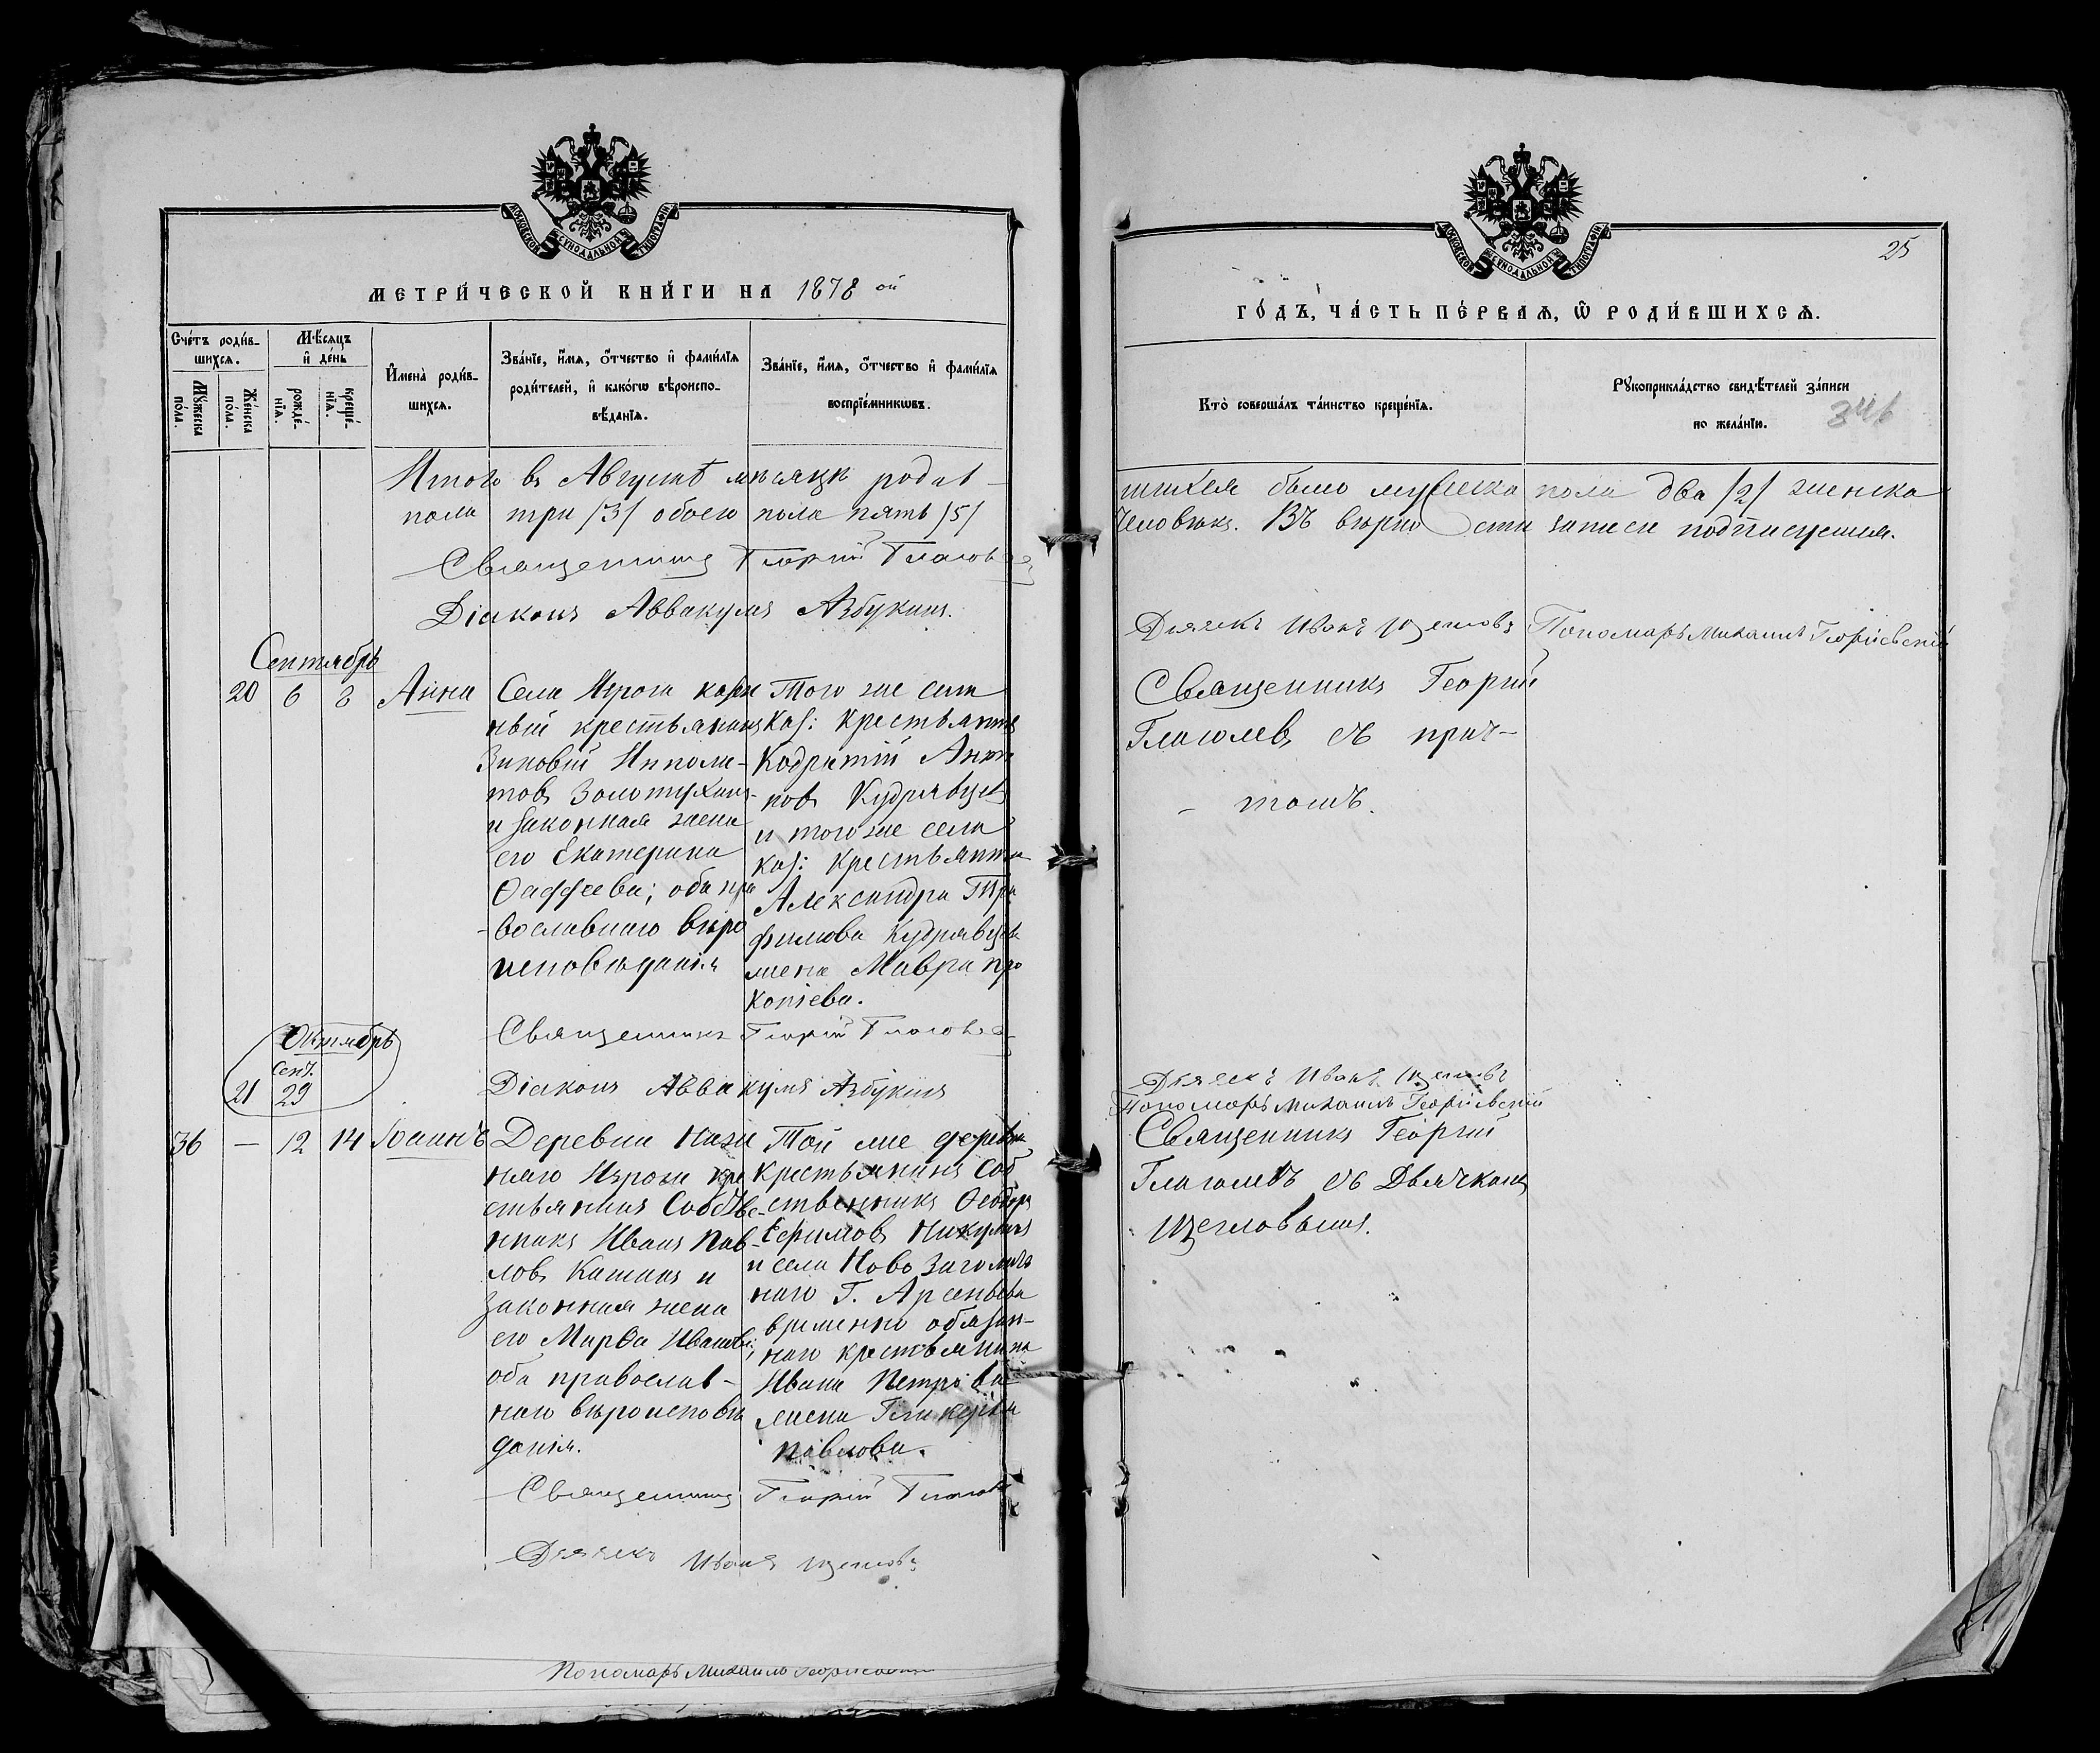 МОСКОВСКОЙ СѴНОДАЛЬНОЙ ТИПОГРАФІИ
МЕТРИ́ЧЕСКОЙ КНИ́ГИ НА 1878 ой
Сче́тъ роди́в-
шихсѧ.
Мѣ́сѧцъ
и҆ де́нь
Мꙋ́жеска
по́ла.
Же́нска
по́ла.
рожде́-
нїѧ.
креще́-
нїѧ.
И҆мена̀ роди́в-
шихсѧ.
Зва́нїе, и҆́мѧ, ѻ҆́тчество и҆ фами́лїѧ
роди́телей, и҆ како́гѡ вѣроиспо-
вѣ́данїѧ.
Зва́нїе, и҆́мѧ, ѻ҆́тчество и҆ фами́лїѧ
воспрїе́мникѡвъ.
Итого въ Августѣ мѣсяцѣ родив-
пола три /3/ обоего пола пять /5/
Священникъ Георгій Глаголевъ
Діаконъ Аввакумъ Азбукинъ.
Сентябрь
20 6 8 Анна
Села Изрога казен
ный крестьянинъ
Зиновій Ипполи-
товъ Золотухинъ
и законная жена
его Екатерина
Ѳаддеева; оба пра
вославнаго вѣро
исповѣданія
Того же села
Каз: крестьянинъ
Кодратій Анти
повъ Кудрявцевъ
и того же села
каз: крестьянина
Александра Тро
фимова Кудрявцева
жена Мавра Про
копіева.
Священникъ Георгій Глаголевъ
Октябрь
Сент.
21 29
Діаконъ Аввакумъ Азбукинъ
36 — 12 14 Іоаннъ
Деревни Ниж
няго Изрога кре
стьянинъ Собстве-
нникъ Иванъ Пав-
ловъ Кашинъ и
законная жена
его Марѳа Иванова;
оба православ-
наго вѣроисповѣ
данія.
Той же деревни
Крестьянинъ Соб
ственникъ Ѳеодоръ
Ефимовъ Никулинъ
и села Ново
наго Г. Арсеньева
временно обязан-
наго крестьянина
Ивана Петрова
жена Гликерія
Павлова.
Священникъ Георгій Глаголевъ
Дьячекъ Иванъ Щегловъ
Пономарь Михаилъ Георгіевскій
МОСКОВСКОЙ СѴНОДАЛЬНОЙ ТИПОГРАФІИ
25
ГО́ДЪ, ЧА́СТЬ ПЕ́РВАѦ, Ѡ҆ РОДИ́ВШИХСѦ.
Кто̀ соверша́лъ та́инство креще́нїѧ.
Рꙋкоприкла́дство свидѣ́телей за́писи
по жела́нїю.
346
шихся было мужеска пола два /2/ женска
человѣкъ. Въ вѣрности записи подписуемся.
Дьячекъ Иванъ Щегловъ Пономарь Михаилъ Георгіевскій
Священникъ Георгій
Глаголевъ съ прич-
- томъ.
Дьячекъ Иванъ Щегловъ
Пономарь Михаилъ Георгіевскій
Священникъ Георгій
Глаголевъ съ Дьячкомъ
Щегловымъ.